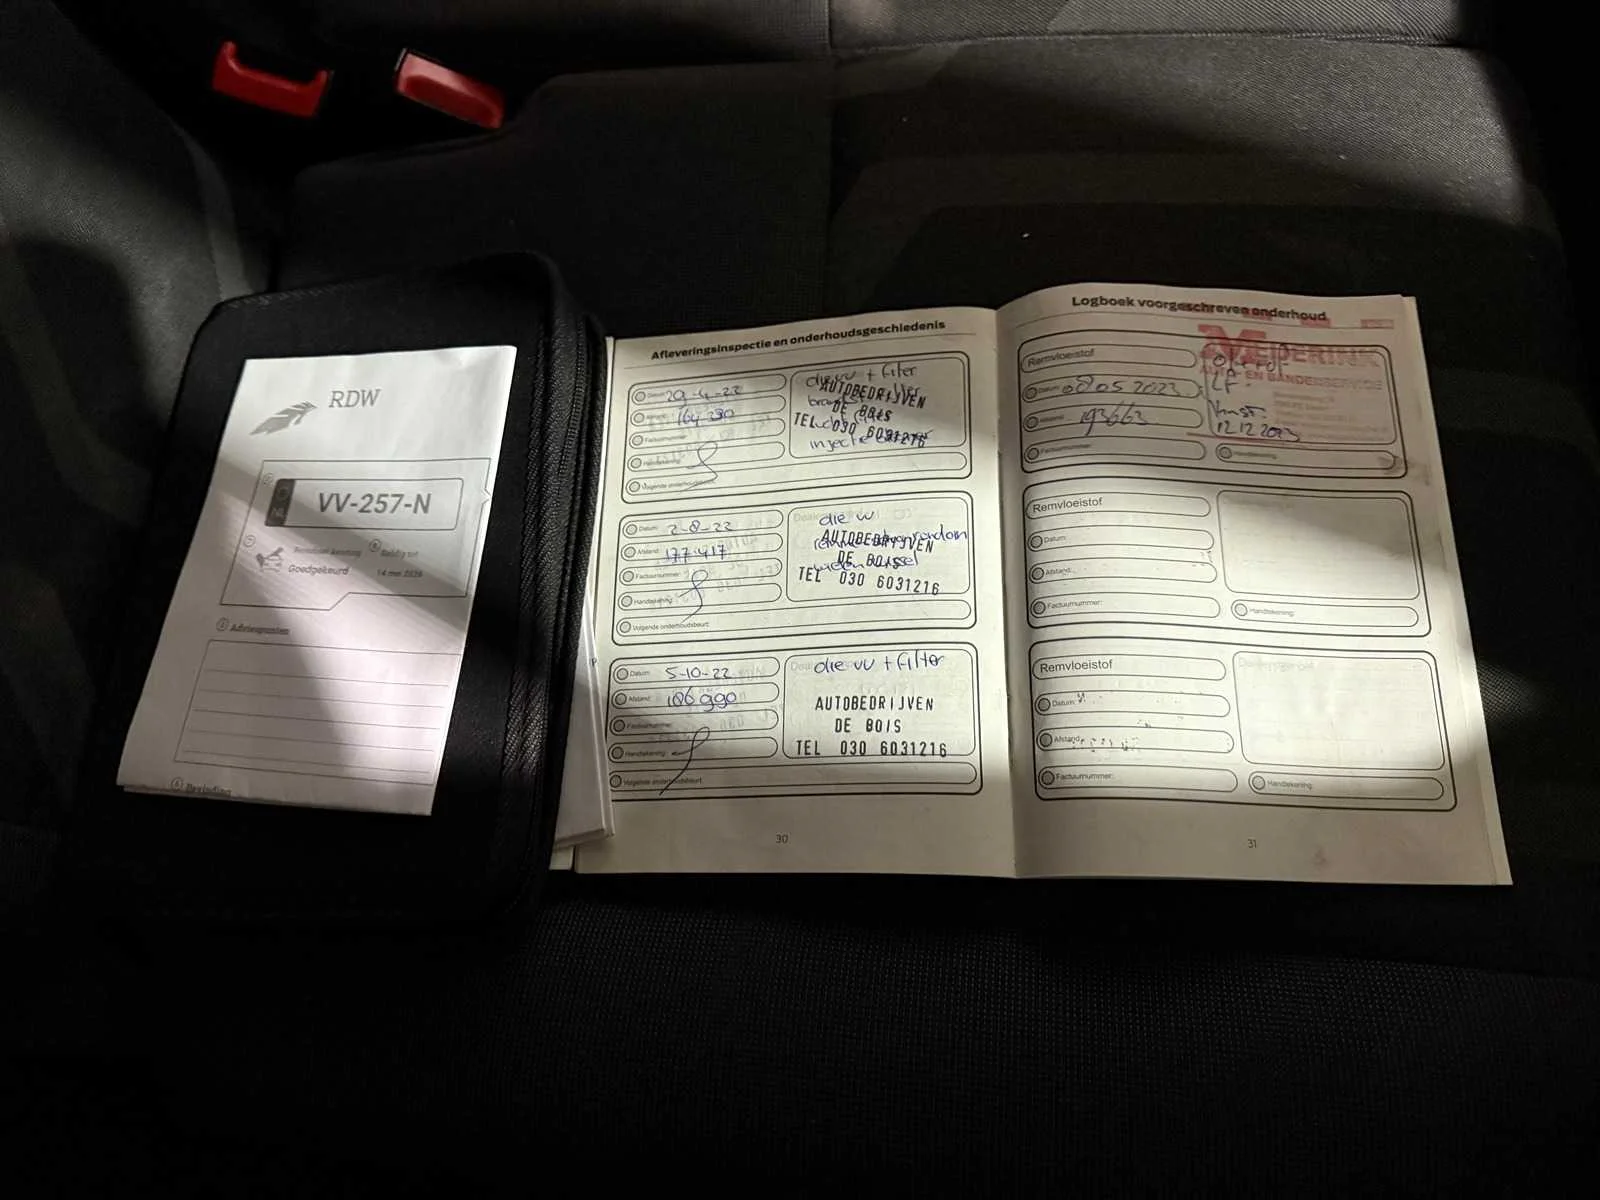 RDW
NL
VV-257-N
Goedgekeurd
Geldig tot
14 mei 2026
Adviespunten
Bevinding
Afleveringsinspectie en onderhoudsgeschiedenis
Datum: 29-4-22
Afstand: 164.230
Factuurnummer:
Handtekening:
Volgende onderhoudsbeurt:
olie vv + filter
AUTOBEDRIJVEN
DE BOIS
TEL 030 6031216
Datum: 2-8-22
Afstand: 177.417
Factuurnummer:
Handtekening:
Volgende onderhoudsbeurt:
olie vv
AUTOBEDRIJVEN
DE BOIS
TEL 030 6031216
Datum: 5-10-22
Afstand: 186 990
Factuurnummer:
Handtekening:
Volgende onderhoudsbeurt:
olie vv + filter
AUTOBEDRIJVEN
DE BOIS
TEL 030 6031216
30
Logboek voorgeschreven onderhoud
Remvloeistof
Datum: 08.05 2023
Afstand: 193663
Factuurnummer:
Handtekening:
MEIJERINK
AUTO- EN BANDENSERVICE
12.12.2023
Remvloeistof
Datum:
Afstand:
Factuurnummer:
Handtekening:
Remvloeistof
Datum:
Afstand:
Factuurnummer:
Handtekening:
31